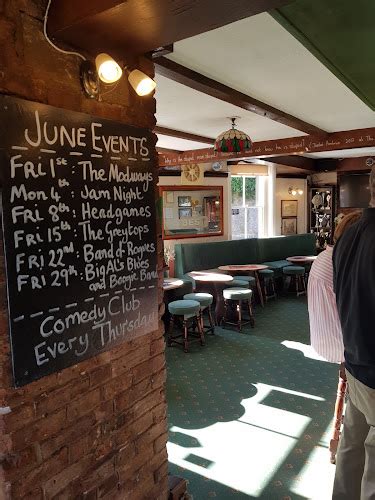 June Events
Fri 1st: The Modways
Mon 4th: Jam Night
Fri 8th: Headgames
Fri 15th: The Grey Tops
Fri 22nd: Band of Rogues
Fri 29th: Big Al's Blues
and Boogie Band
Comedy Club
Every Thursday